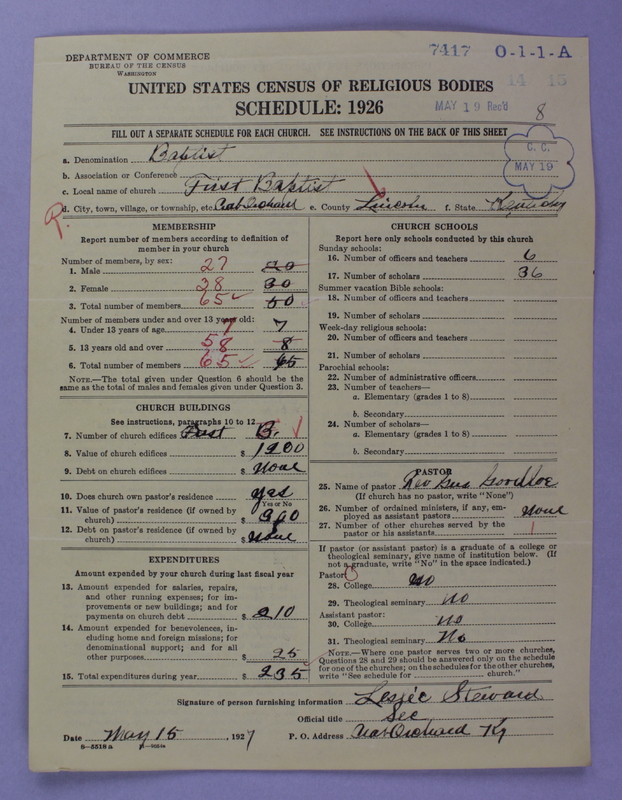 7417 O-1-1-A
DEPARTMENT OF COMMERCE
BUREAU OF THE CENSUS
WASHINGTON
14 15
UNITED STATES CENSUS OF RELIGIOUS BODIES
SCHEDULE: 1926
MAY 19 Rec'd
8
FILL OUT A SEPARATE SCHEDULE FOR EACH CHURCH. SEE INSTRUCTIONS ON THE BACK OF THIS SHEET
C. C.
MAY 19
a. Denomination Baptist
b. Association or Conference
c. Local name of church First Baptist
d. City, town, village, or township, etc. Crab Orchard e. County Lincoln f. State Kentucky
R.
MEMBERSHIP
Report number of members according to definition of
member in your church
Number of members, by sex:
1. Male 27 20
2. Female 38 30
3. Total number of members 65 50
Number of members under and over 13 years old:
4. Under 13 years of age 7 7
5. 13 years old and over 58 8
6. Total number of members 65 65
NOTE.—The total given under Question 6 should be the
same as the total of males and females given under Question 3.
CHURCH BUILDINGS
See instructions, paragraphs 10 to 12
7. Number of church edifices
8. Value of church edifices $ 1200
9. Debt on church edifices $ None
10. Does church own pastor's residence yes
Yes or No
11. Value of pastor's residence (if owned by
church) $ 300
12. Debt on pastor's residence (if owned by
church) $ None
EXPENDITURES
Amount expended by your church during last fiscal year
13. Amount expended for salaries, repairs,
and other running expenses; for im-
provements or new buildings; and for
payments on church debt $ 210
14. Amount expended for benevolences, in-
cluding home and foreign missions; for
denominational support; and for all
other purposes $ 25
15. Total expenditures during year $ 235
CHURCH SCHOOLS
Report here only schools conducted by this church
Sunday schools:
16. Number of officers and teachers 6
17. Number of scholars 36
Summer vacation Bible schools:
18. Number of officers and teachers
19. Number of scholars
Week-day religious schools:
20. Number of officers and teachers
21. Number of scholars
Parochial schools:
22. Number of administrative officers
23. Number of teachers—
a. Elementary (grades 1 to 8)
b. Secondary
24. Number of scholars—
a. Elementary (grades 1 to 8)
b. Secondary
PASTOR
25. Name of pastor Rev Gus Goodloe
(If church has no pastor, write "None")
26. Number of ordained ministers, if any, em-
ployed as assistant pastors None
27. Number of other churches served by the
pastor or his assistants 1
If pastor (or assistant pastor) is a graduate of a college or
theological seminary, give name of institution below. (If
not a graduate, write "No" in the space indicated.)
Pastor:
28. College No
29. Theological seminary No
Assistant pastor:
30. College No
31. Theological seminary No
NOTE.—Where one pastor serves two or more churches,
Questions 28 and 29 should be answered only on the schedule
for one of the churches; on the schedules for the other churches,
write "See schedule for church."
Signature of person furnishing information Lessie Steward
Official title Sec
Date May 15, 1927 P. O. Address Crab Orchard Ky
8—5518 a